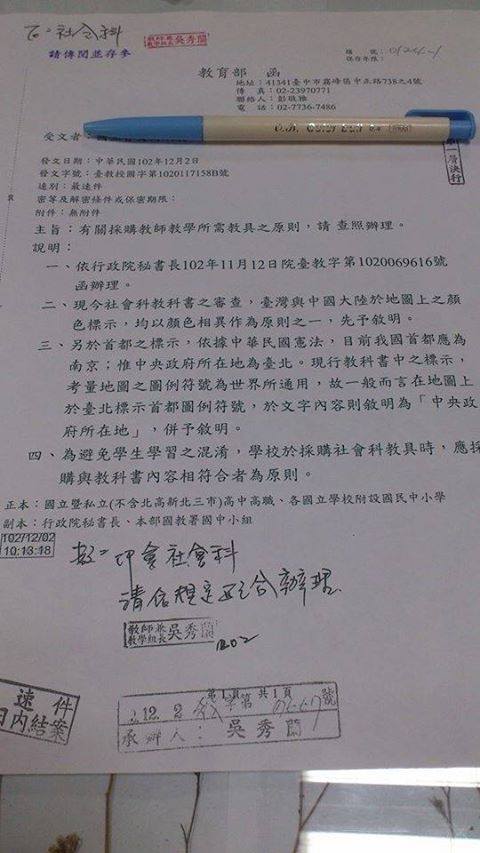 社會科
教師兼
教學組長 吳秀蘭
請傳閱並存參
檔 號：0124-1
保存年限：
教育部 函
地址：41341臺中市霧峰區中正路738之4號
傳 真：02-23970771
聯絡人：彭琡雅
電 話：02-7736-7486
受文者
第一層決行
發文日期：中華民國102年12月2日
發文字號：臺教授國字第1020117158B號
速別：最速件
密等及解密條件或保密期限：
附件：無附件
主旨：有關採購教師教學所需教具之原則，請 查照辦理。
說明：
一、依行政院秘書長102年11月12日院臺教字第1020069616號
函辦理。
二、現今社會科教科書之審查，臺灣與中國大陸於地圖上之顏
色標示，均以顏色相異作為原則之一，先予敘明。
三、另於首都之標示，依據中華民國憲法，目前我國首都應為
南京；惟中央政府所在地為臺北。現行教科書中之標示，
考量地圖之圖例符號為世界所通用，故一般而言在地圖上
於臺北標示首都圖例符號，於文字內容則敘明為「中央政
府所在地」，併予敘明。
四、為避免學生學習之混淆，學校於採購社會科教具時，應採
購與教科書內容相符合者為原則。
正本：國立暨私立(不含北高新北三市)高中高職、各國立學校附設國民中小學
副本：行政院秘書長、本部國教署國中小組
102/12/02
10:13:18
印會社會科
請依規定配合辦理
教師兼
教學組長 吳秀蘭
1202
速 件
日內結案
第1頁 共1頁
12. 2 字第 號
承辦人： 吳秀蘭